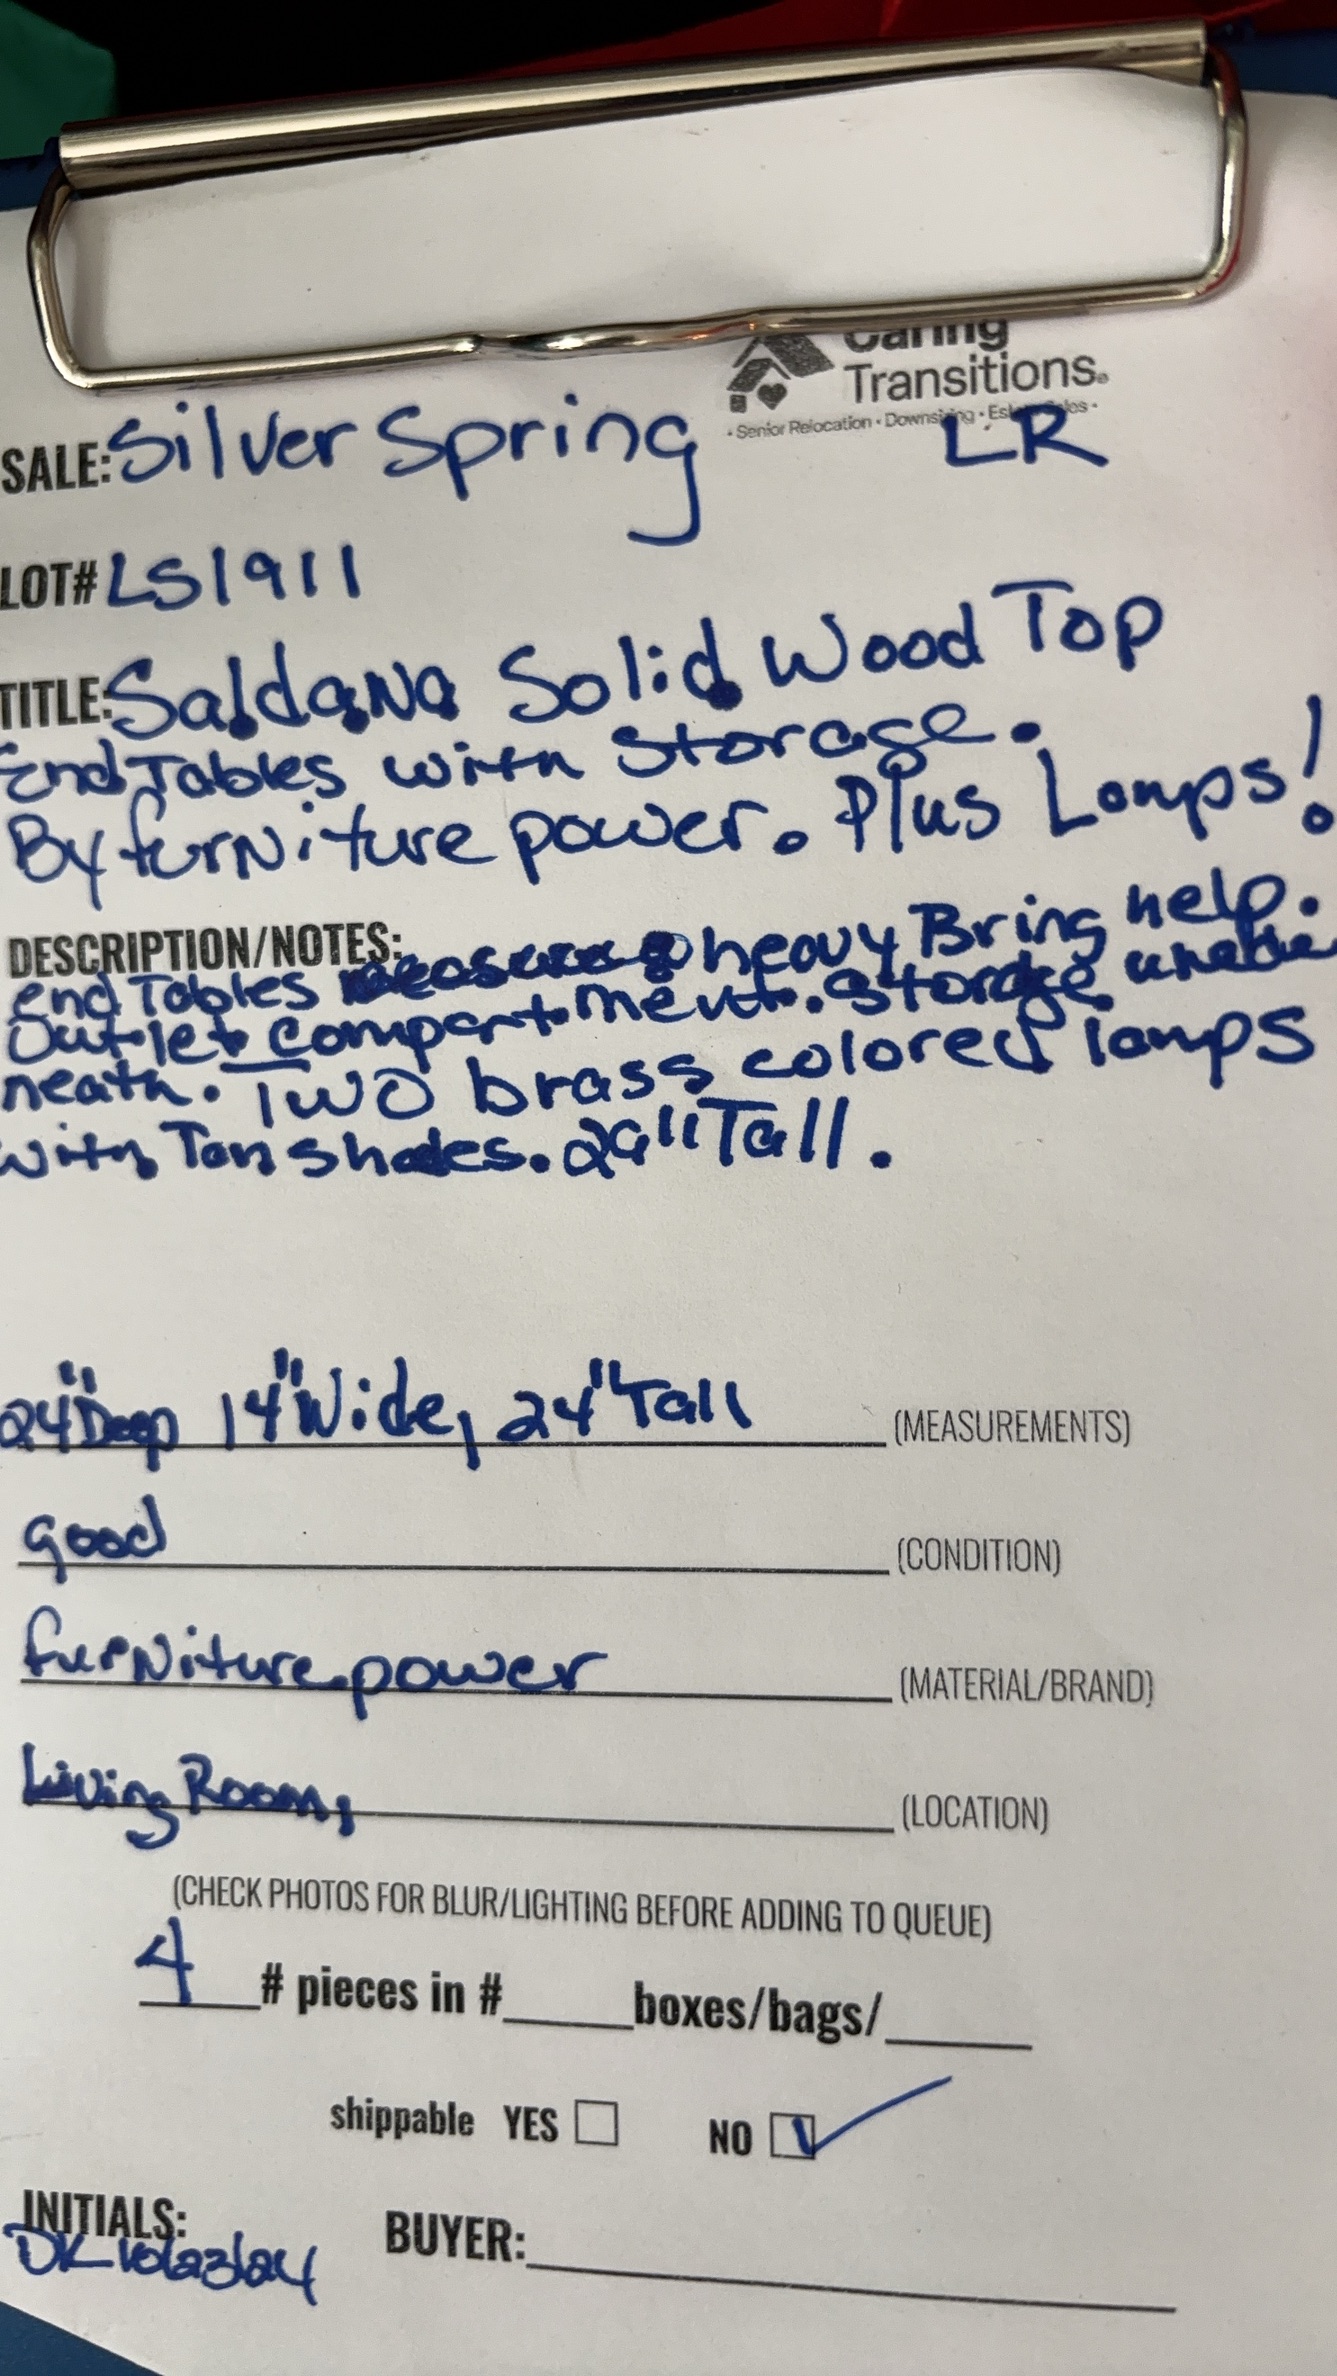 Caring
Transitions®
• Senior Relocation • Downsizing • Estate Sales •
SALE: Silver Spring LR
LOT# LS1911
TITLE: Saldana Solid Wood Top
End Tables with Storage.
By furniture power. Plus Lamps!
DESCRIPTION/NOTES:
End Tables heavy Bring help.
Outlet compartment. Storage under
neath. Two brass colored lamps
with Tan shades. 29" Tall.
24" Deep 14" Wide, 24" Tall (MEASUREMENTS)
good (CONDITION)
furniture power (MATERIAL/BRAND)
Living Room, (LOCATION)
(CHECK PHOTOS FOR BLUR/LIGHTING BEFORE ADDING TO QUEUE)
4 # pieces in # boxes/bags/
shippable YES NO ✓
INITIALS: BUYER:
DK 10/23/24